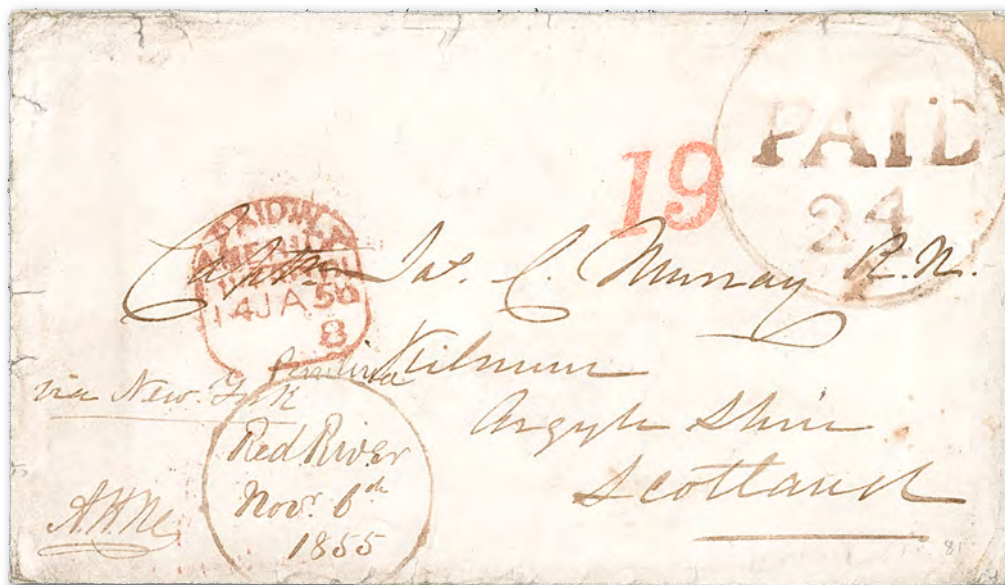 PAID
24
19
PAID IN
AMERICA
LIVERPOOL
14 JA 56
8
Captn Jas. C. Murray R.N.
Kilmun
Argyle Shire
Scotland
via New. York
Pembina
Red River
Novr. 6th
1855
81